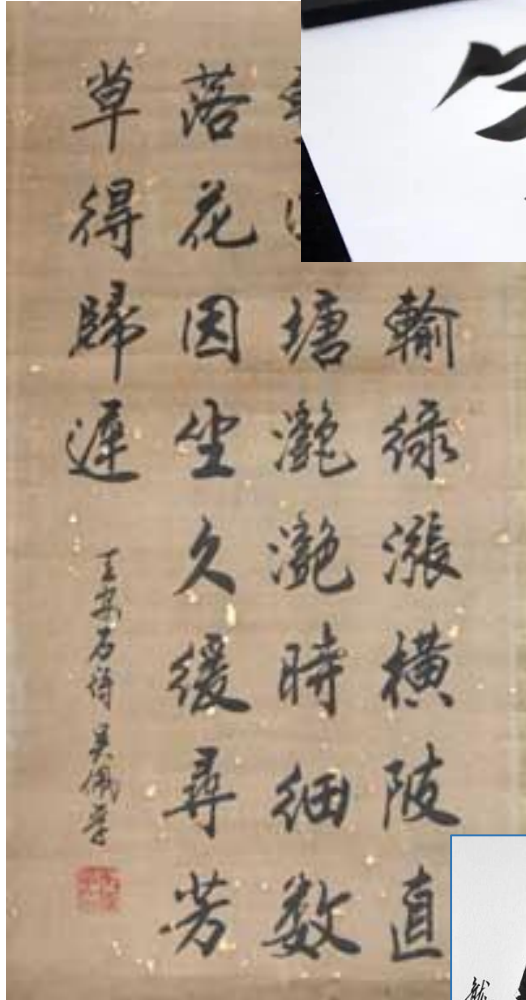 輸綠漲橫陂直
塘灔灔時細数
落花因坐久緩尋芳
草得歸遲
王安石詩 吳佩孚